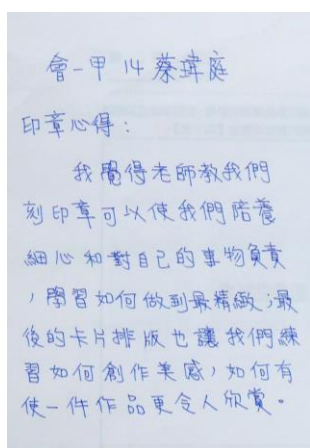 會一甲 14 蔡瑋庭
印章心得：
我覺得老師教我們
刻印章可以使我們陪養
細心和對自己的事物負責
，學習如何做到最精緻；最
後的卡片排版也讓我們練
習如何創作美感，如何有
使一件作品更令人欣賞。